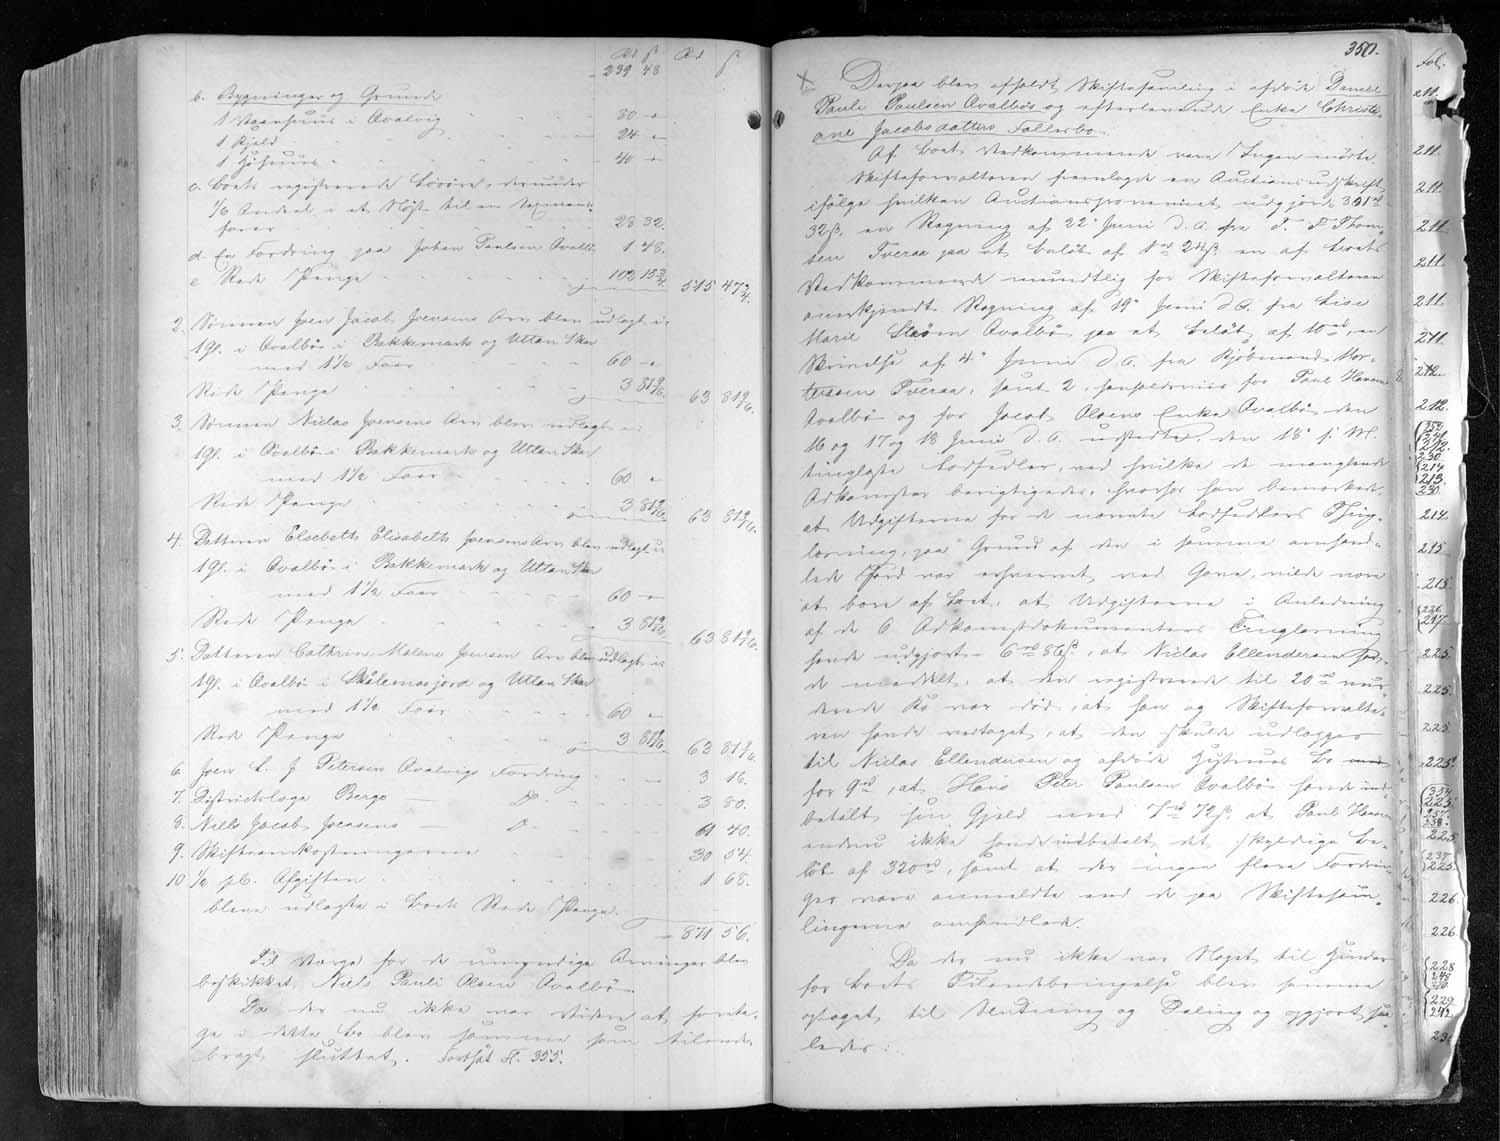 Rd ß Rd ß
239 48
b. Bygninger og Grunde
1 Vaanhuus i Qvalvig 80 "
1 Hjeld 24 "
1 Høhuus 40 "
c. Boets registrerede Løsøre, derunder
1/6 Andeel i et Nøst til en
farer 28 32.
d. En Fordring paa Johan Paulsen Qvalbø 1 48.
e Rede Penge 102 15 3/4. 515 47 3/4.
2. Sønnen Joen Jacob Joensens Arv blev udlagt i:
1 Gl. i Qvalbø i Bakkemark og Uttan Skar
med 1 1/2 Faar 60 "
Rede Penge 3 81 9/16. 63 81 9/16.
3. Sønnen Niclas Joensens Arv blev udlagt i:
1 Gl. i Qvalbø i Bakkemark og Uttan Skar
med 1 1/2 Faar 60 "
Rede Penge 3 81 9/16. 63 81 9/16.
4. Datteren Elsebeth Elisabeth Joensens Arv blev udlagt i:
1 Gl. i Qvalbø i Bakkemark og Uttan Skar
med 1 1/2 Faar 60 "
Rede Penge 3 81 9/16. 63 81 9/16.
5. Datteren Cathrine Malene Joensen Arv blev udlagt i:
1 Gl. i Qvalbø i Skålemasjord og Uttan Skar
med 1 1/2 Faar 60 "
Rede Penge 3 81 9/16. 63 81 9/16.
6 Joen L. J. Petersen Qvalvigs Fordring 3 16.
7. Districtslæge Bergs — Do 3 80.
8. Niels Jacob Joensens — Do 61 40.
9. Skifteomkostningerne 30 54.
10 1/2 pC. Afgiften 1 68.
bleve udlagte i Boets Rede Penge.
871 56.
Til Værge for de umyndige Arvinger blev
beskikket Niels Pauli Olsen Qvalbø.
Da der nu ikke var videre at foreta-
ge i dette Bo blev samme som tilende-
bragt sluttet. Fortsat Fl. 355.
350.
Derpaa blev afholdt Skiftesamling i afdøde Daniel
Pauli Paulsen Qvalbøs og efterlevende Enke Christi-
ane Jacobsdatters Fællesbo.
Af Boets Vedkommende vare Ingen mødte.
Skifteforvalteren fremlagde en Auctionsudskrift
ifølge hvilken Auctionsprovenuet udgjorde 391 rd
32 ß, en Regning af 22' Juni d. A. fra T. F. Thom-
sen Tveraa paa et Beløb af 1 rd 24 ß, en af Boets
Vedkommende mundtlig for Skifteforvalteren
anerkjendt Regning af 19' Juni d A. fra Lise
Marie Strøm Qvalbø paa et Beløb af 10 rd, en
Skrivelse af 4' Juni d. A. fra Kjøbmand Mor-
tensen Tveraa, samt 2, henholdsviis for Poul Hansen
Qvalbø og for Jacob Olsens Enke Qvalbø, den
16 og 17 og 18 Juni d. A. udstedte, den 18' s. M.
tinglæste Lodsedler, ved hvilke de manglende
Adkomster berigtigedes, hvorhos han bemærkede,
at Udgifterne for de nævnte Lodsedlers Thing-
læsning, paa Grund af den i samme omhand-
lede Jord var erhvervet ved Gave, vilde være
at bære af Boet, at Udgifterne i Anledning
af de 6 Adkomstdokumenters Tinglæsning
havde udgjort 6 rd 86 ß, at Niclas Ellendersen hav-
de meddelt, at den registrerede til 20 rd vur-
derede Ko var død, at han og Skifteforvalte-
ren havde vedtaget, at den skulde udlægges
til Niclas Ellendersen og afdøde Hustrues Bo
for 9 rd, at Hans Peter Paulsen Qvalbø havde ind-
betalt sin Gjæld med 7 rd 72 ß, at Poul Hansen
endnu ikke havde indbetalt det skyldige Be-
løb af 320 rd, samt at der ingen flere Fordrin-
ger vare anmeldte end de paa Skiftesam-
lingerne omhandlede.
Da der nu ikke var Noget til Hinder
for Boets Tilendebringelse blev samme
optaget til Slutning og Deling og opgjort saa-
ledes:
Fol.
211.
211.
211.
211.
211.
211.
211.
212.
212.
212.
230
214
213.
230.
214.
215.
215.
226
217.
225.
225.
225.
225.
334
225.
257.
338.
225
237
225.
226.
226
228
248
229
242